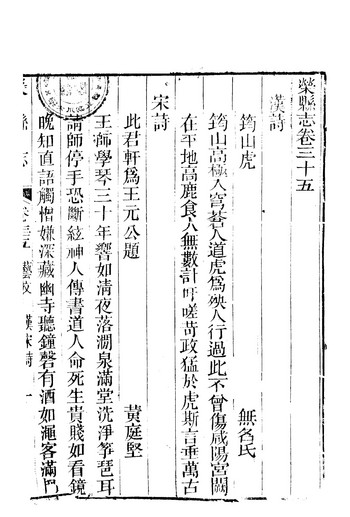 榮縣志卷三十五
漢詩
筠山虎 無名氏
筠山高極入穹蒼人道虎為殃人行過此不曾傷咸陽宮闕
在平地高鹿食人無數計吁嗟苛政猛於虎斯言垂萬古
宋詩
此君軒為王元公題 黃庭堅
王師學琴三十年響如清夜落澗泉滿堂洗淨箏琶耳
請師停手恐斷絃神人傳書道人命死生貴賤如看鏡
晚知直語觸憎嫌深藏幽寺聽鐘磬有酒如澠客滿門
縣志 卷三五 藝文 漢宋詩 一